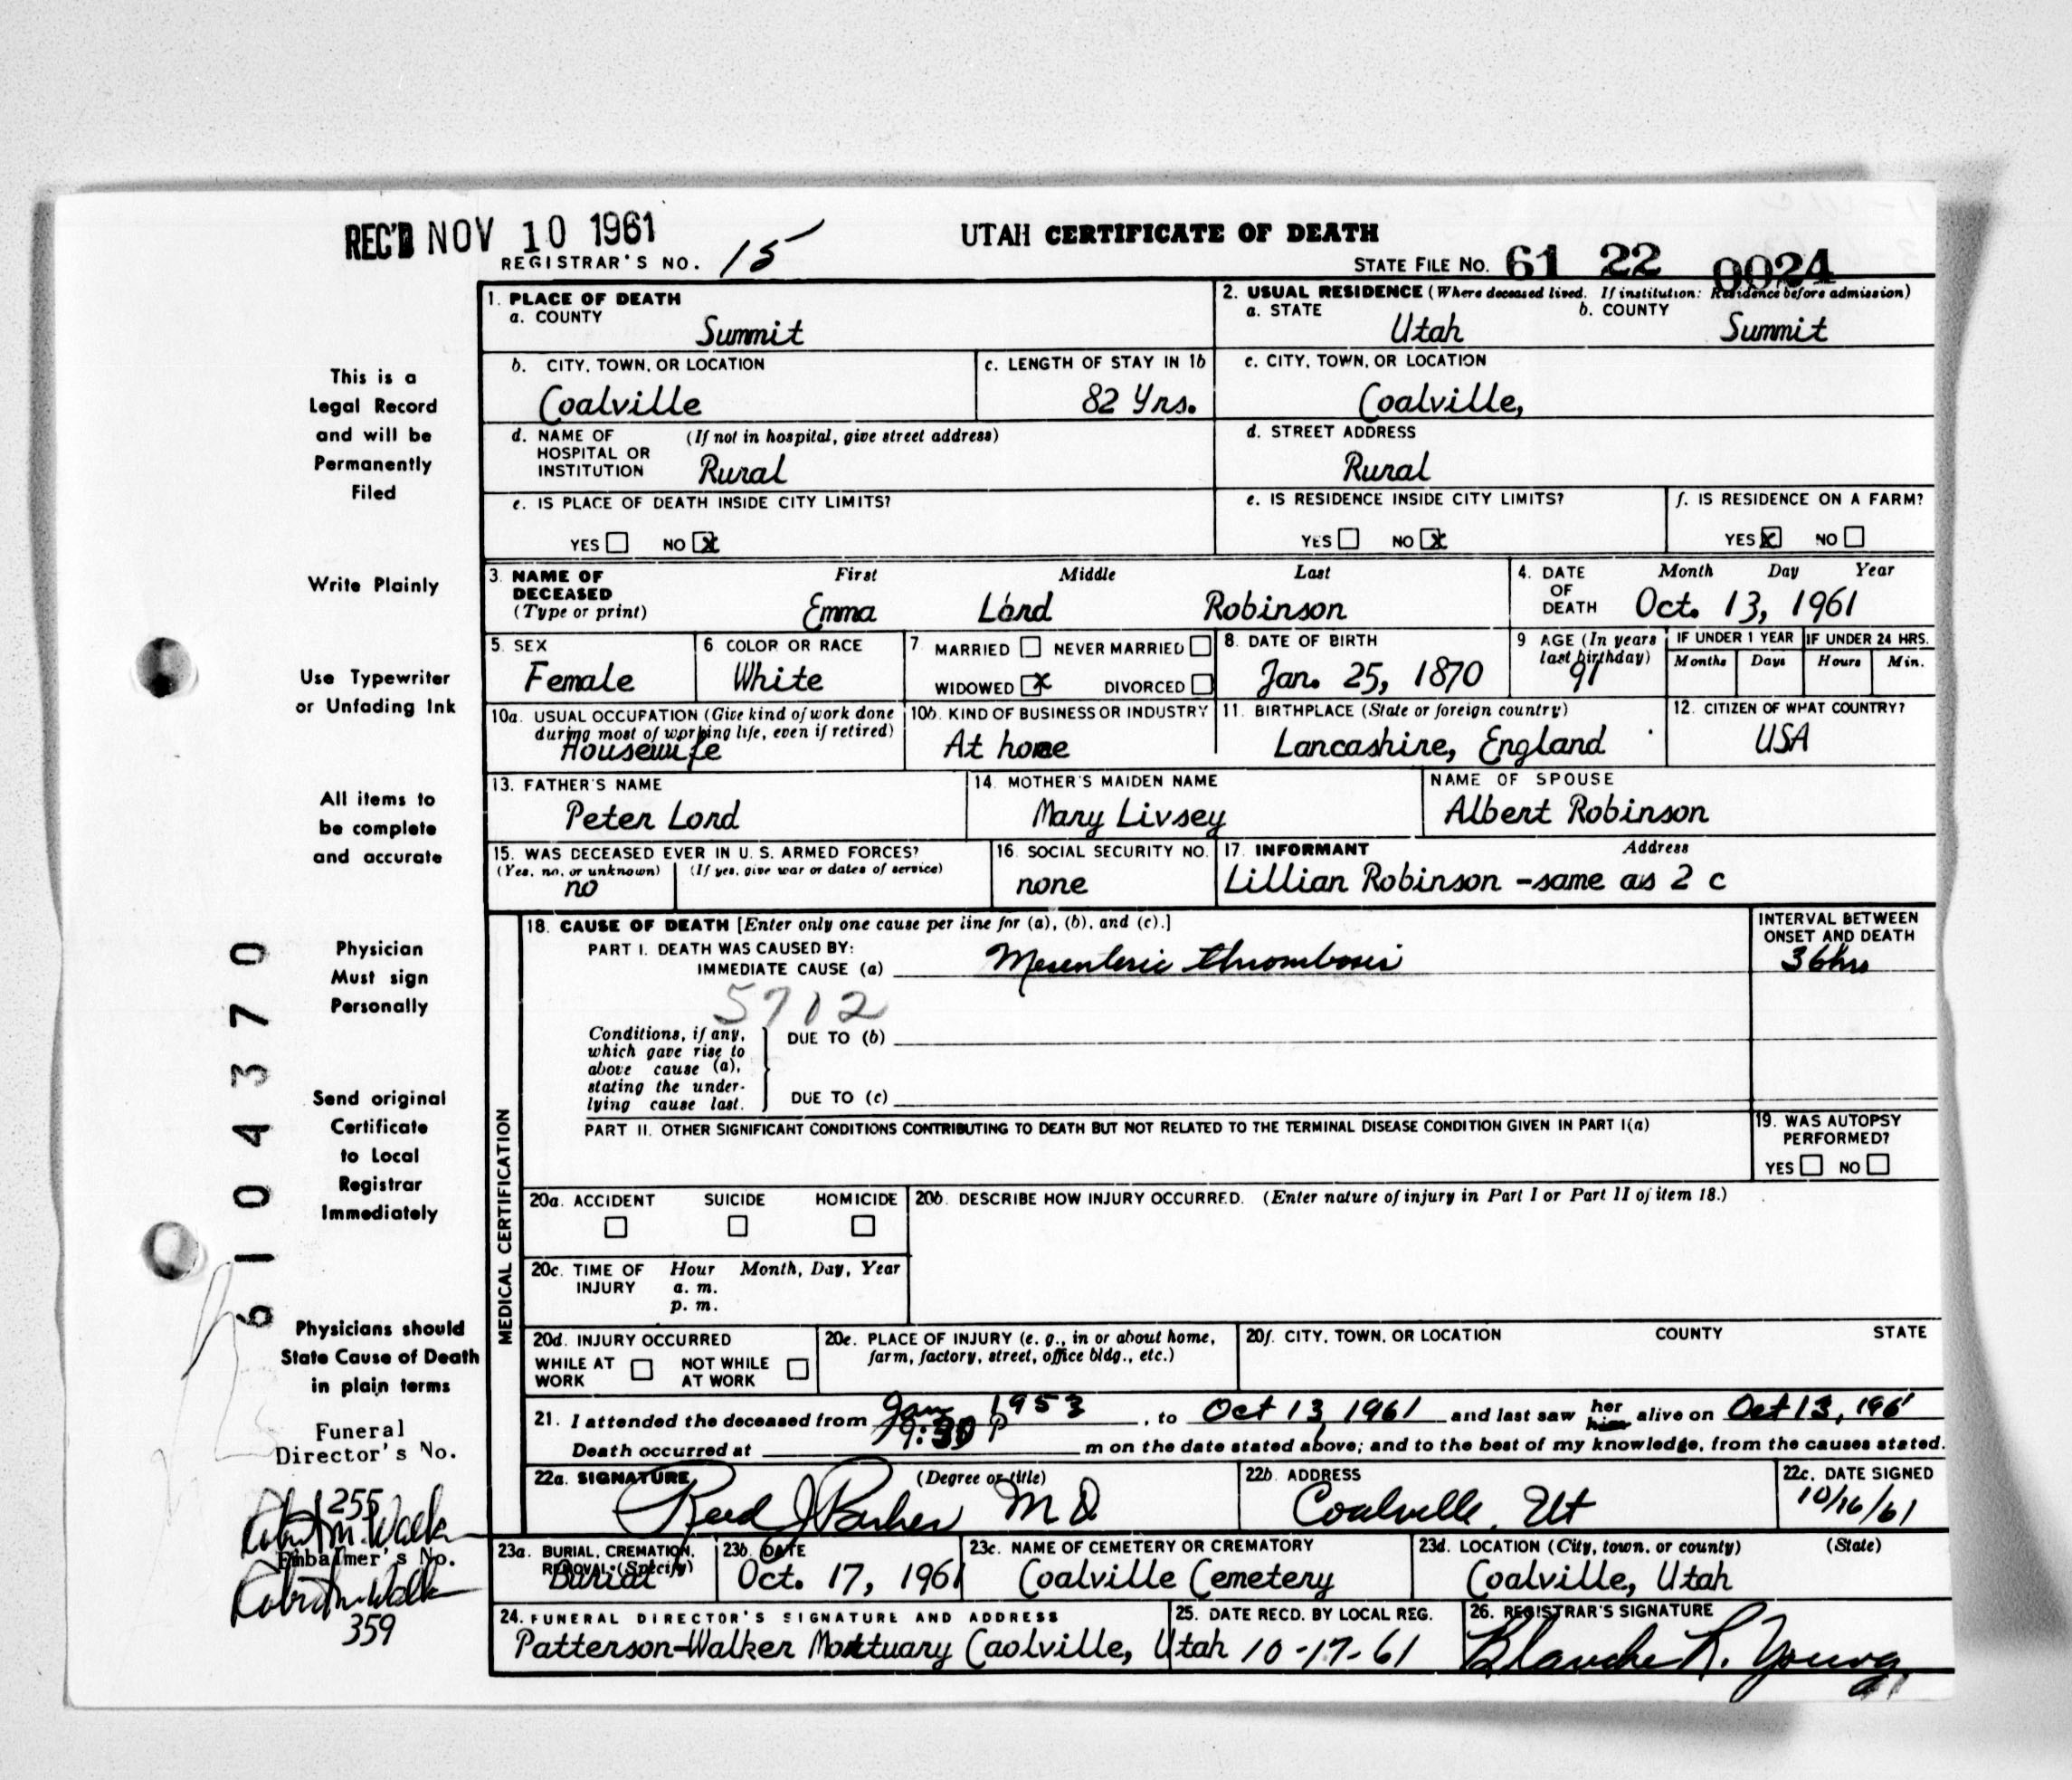 REC'D NOV 10 1961
REGISTRAR'S NO. 15
UTAH CERTIFICATE OF DEATH
STATE FILE NO. 61 22 0024
This is a
Legal Record
and will be
Permanently
Filed
Write Plainly
Use Typewriter
or Unfading Ink
All items to
be complete
and accurate
Physician
Must sign
Personally
Send original
Certificate
to Local
Registrar
Immediately
Physicians should
State Cause of Death
in plain terms
Funeral
Director's No.
255
Embalmer's No.
359
6104370
1. PLACE OF DEATH
a. COUNTY
Summit
2. USUAL RESIDENCE (Where deceased lived. If institution: Residence before admission)
a. STATE Utah b. COUNTY Summit
b. CITY, TOWN, OR LOCATION
Coalville
c. LENGTH OF STAY IN 1b
82 Yrs.
c. CITY, TOWN, OR LOCATION
Coalville,
d. NAME OF HOSPITAL OR INSTITUTION (If not in hospital, give street address)
Rural
d. STREET ADDRESS
Rural
e. IS PLACE OF DEATH INSIDE CITY LIMITS?
YES NO X
e. IS RESIDENCE INSIDE CITY LIMITS?
YES NO X
f. IS RESIDENCE ON A FARM?
YES X NO
3. NAME OF DECEASED (Type or print)
First Middle Last
Emma Lord Robinson
4. DATE OF DEATH
Month Day Year
Oct. 13, 1961
5. SEX
Female
6 COLOR OR RACE
White
7. MARRIED NEVER MARRIED
WIDOWED X DIVORCED
8. DATE OF BIRTH
Jan. 25, 1870
9 AGE (In years last birthday)
91
IF UNDER 1 YEAR IF UNDER 24 HRS.
Months Days Hours Min.
10a. USUAL OCCUPATION (Give kind of work done during most of working life, even if retired)
Housewife
10b. KIND OF BUSINESS OR INDUSTRY
At home
11. BIRTHPLACE (State or foreign country)
Lancashire, England
12. CITIZEN OF WHAT COUNTRY?
USA
13. FATHER'S NAME
Peter Lord
14. MOTHER'S MAIDEN NAME
Mary Livsey
NAME OF SPOUSE
Albert Robinson
15. WAS DECEASED EVER IN U. S. ARMED FORCES?
(Yes, no, or unknown) (If yes, give war or dates of service)
no
16. SOCIAL SECURITY NO.
none
17. INFORMANT Address
Lillian Robinson -same as 2 c
MEDICAL CERTIFICATION
18. CAUSE OF DEATH [Enter only one cause per line for (a), (b), and (c).]
PART I. DEATH WAS CAUSED BY:
IMMEDIATE CAUSE (a) Mesenteric thrombosis
INTERVAL BETWEEN ONSET AND DEATH
36 hrs
5712
Conditions, if any, which gave rise to above cause (a), stating the underlying cause last.
DUE TO (b)
DUE TO (c)
PART II. OTHER SIGNIFICANT CONDITIONS CONTRIBUTING TO DEATH BUT NOT RELATED TO THE TERMINAL DISEASE CONDITION GIVEN IN PART I(a)
19. WAS AUTOPSY PERFORMED?
YES NO
20a. ACCIDENT SUICIDE HOMICIDE
20b. DESCRIBE HOW INJURY OCCURRED. (Enter nature of injury in Part I or Part II of item 18.)
20c. TIME OF INJURY Hour Month, Day, Year
a. m.
p. m.
20d. INJURY OCCURRED
WHILE AT WORK NOT WHILE AT WORK
20e. PLACE OF INJURY (e. g., in or about home, farm, factory, street, office bldg., etc.)
20f. CITY, TOWN, OR LOCATION COUNTY STATE
21. I attended the deceased from Jan 1953, to Oct 13, 1961 and last saw her him alive on Oct 13, 1961
Death occurred at P m on the date stated above; and to the best of my knowledge, from the causes stated.
22a. SIGNATURE (Degree or title)
Reed J Parker M D
22b. ADDRESS
Coalville, Ut
22c. DATE SIGNED
10/16/61
23a. BURIAL, CREMATION, REMOVAL (Specify)
Burial
23b. DATE
Oct. 17, 1961
23c. NAME OF CEMETERY OR CREMATORY
Coalville Cemetery
23d. LOCATION (City, town, or county) (State)
Coalville, Utah
24. FUNERAL DIRECTOR'S SIGNATURE AND ADDRESS
Patterson-Walker Mortuary Caolville, Utah
25. DATE RECD. BY LOCAL REG.
10-17-61
26. REGISTRAR'S SIGNATURE
Blanche R. Young